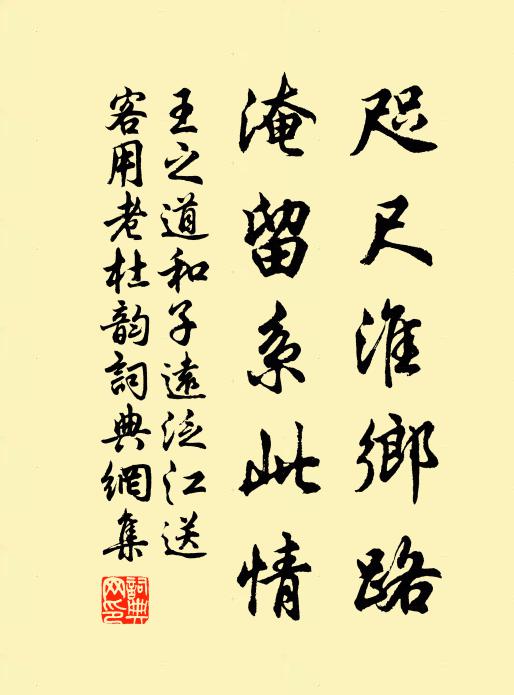 咫尺淮鄉路
淹留系此情
王之道和子遠泛江送
客用老杜韵詞典網集
詞典网印